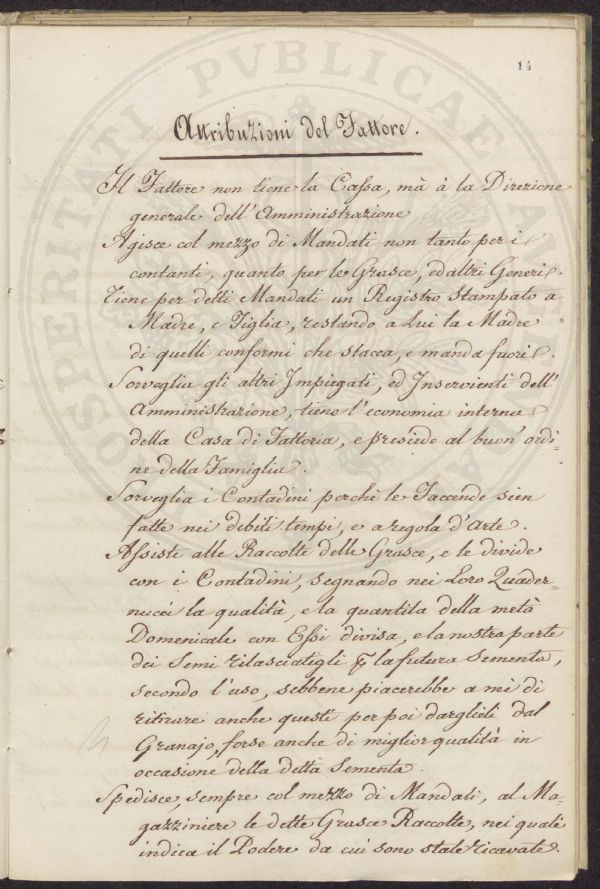 14
Attribuzioni del Fattore.
Il Fattore non tiene la Cassa, mà à la Direzione
generale dell'Amministrazione
Agisce col mezzo di Mandati non tanto per i
contanti, quanto per le Grasce, ed altri Generi.
Tiene per detti Mandati un Registro stampato a
Madre, e Figlia, restando a Lui la Madre
di quelli conformi che stacca, e manda fuori.
Sorveglia gli altri Impiegati, ed Inservienti dell'
Amministrazione, tiene l'economia interna
della Casa di Fattoria, e presiede al buon'ordi-
ne della Famiglia.
Sorveglia i Contadini perchè le Faccende sien
fatte nei debiti tempi, e a regola d'Arte.
Assiste alle Raccolte delle Grasce, e le divide
con i Contadini, segnando nei Loro Quader-
nucci la qualità, e la quantità della metà
Domenicale con Essi divisa, e la nostra parte
dei Semi rilasciatigli p la futura Sementa,
secondo l'uso, sebbene piacerebbe a me di
ritirare anche questi per poi darglieli dal
Granajo, forse anche di miglior qualità in
occasione della detta Sementa.
Spedisce, sempre col mezzo di Mandati, al Ma-
gazziniere le dette Grasce Raccolte, nei quali
indica il Podere da cui sono state ricavate.
PROSPERITATI PVBLICAE